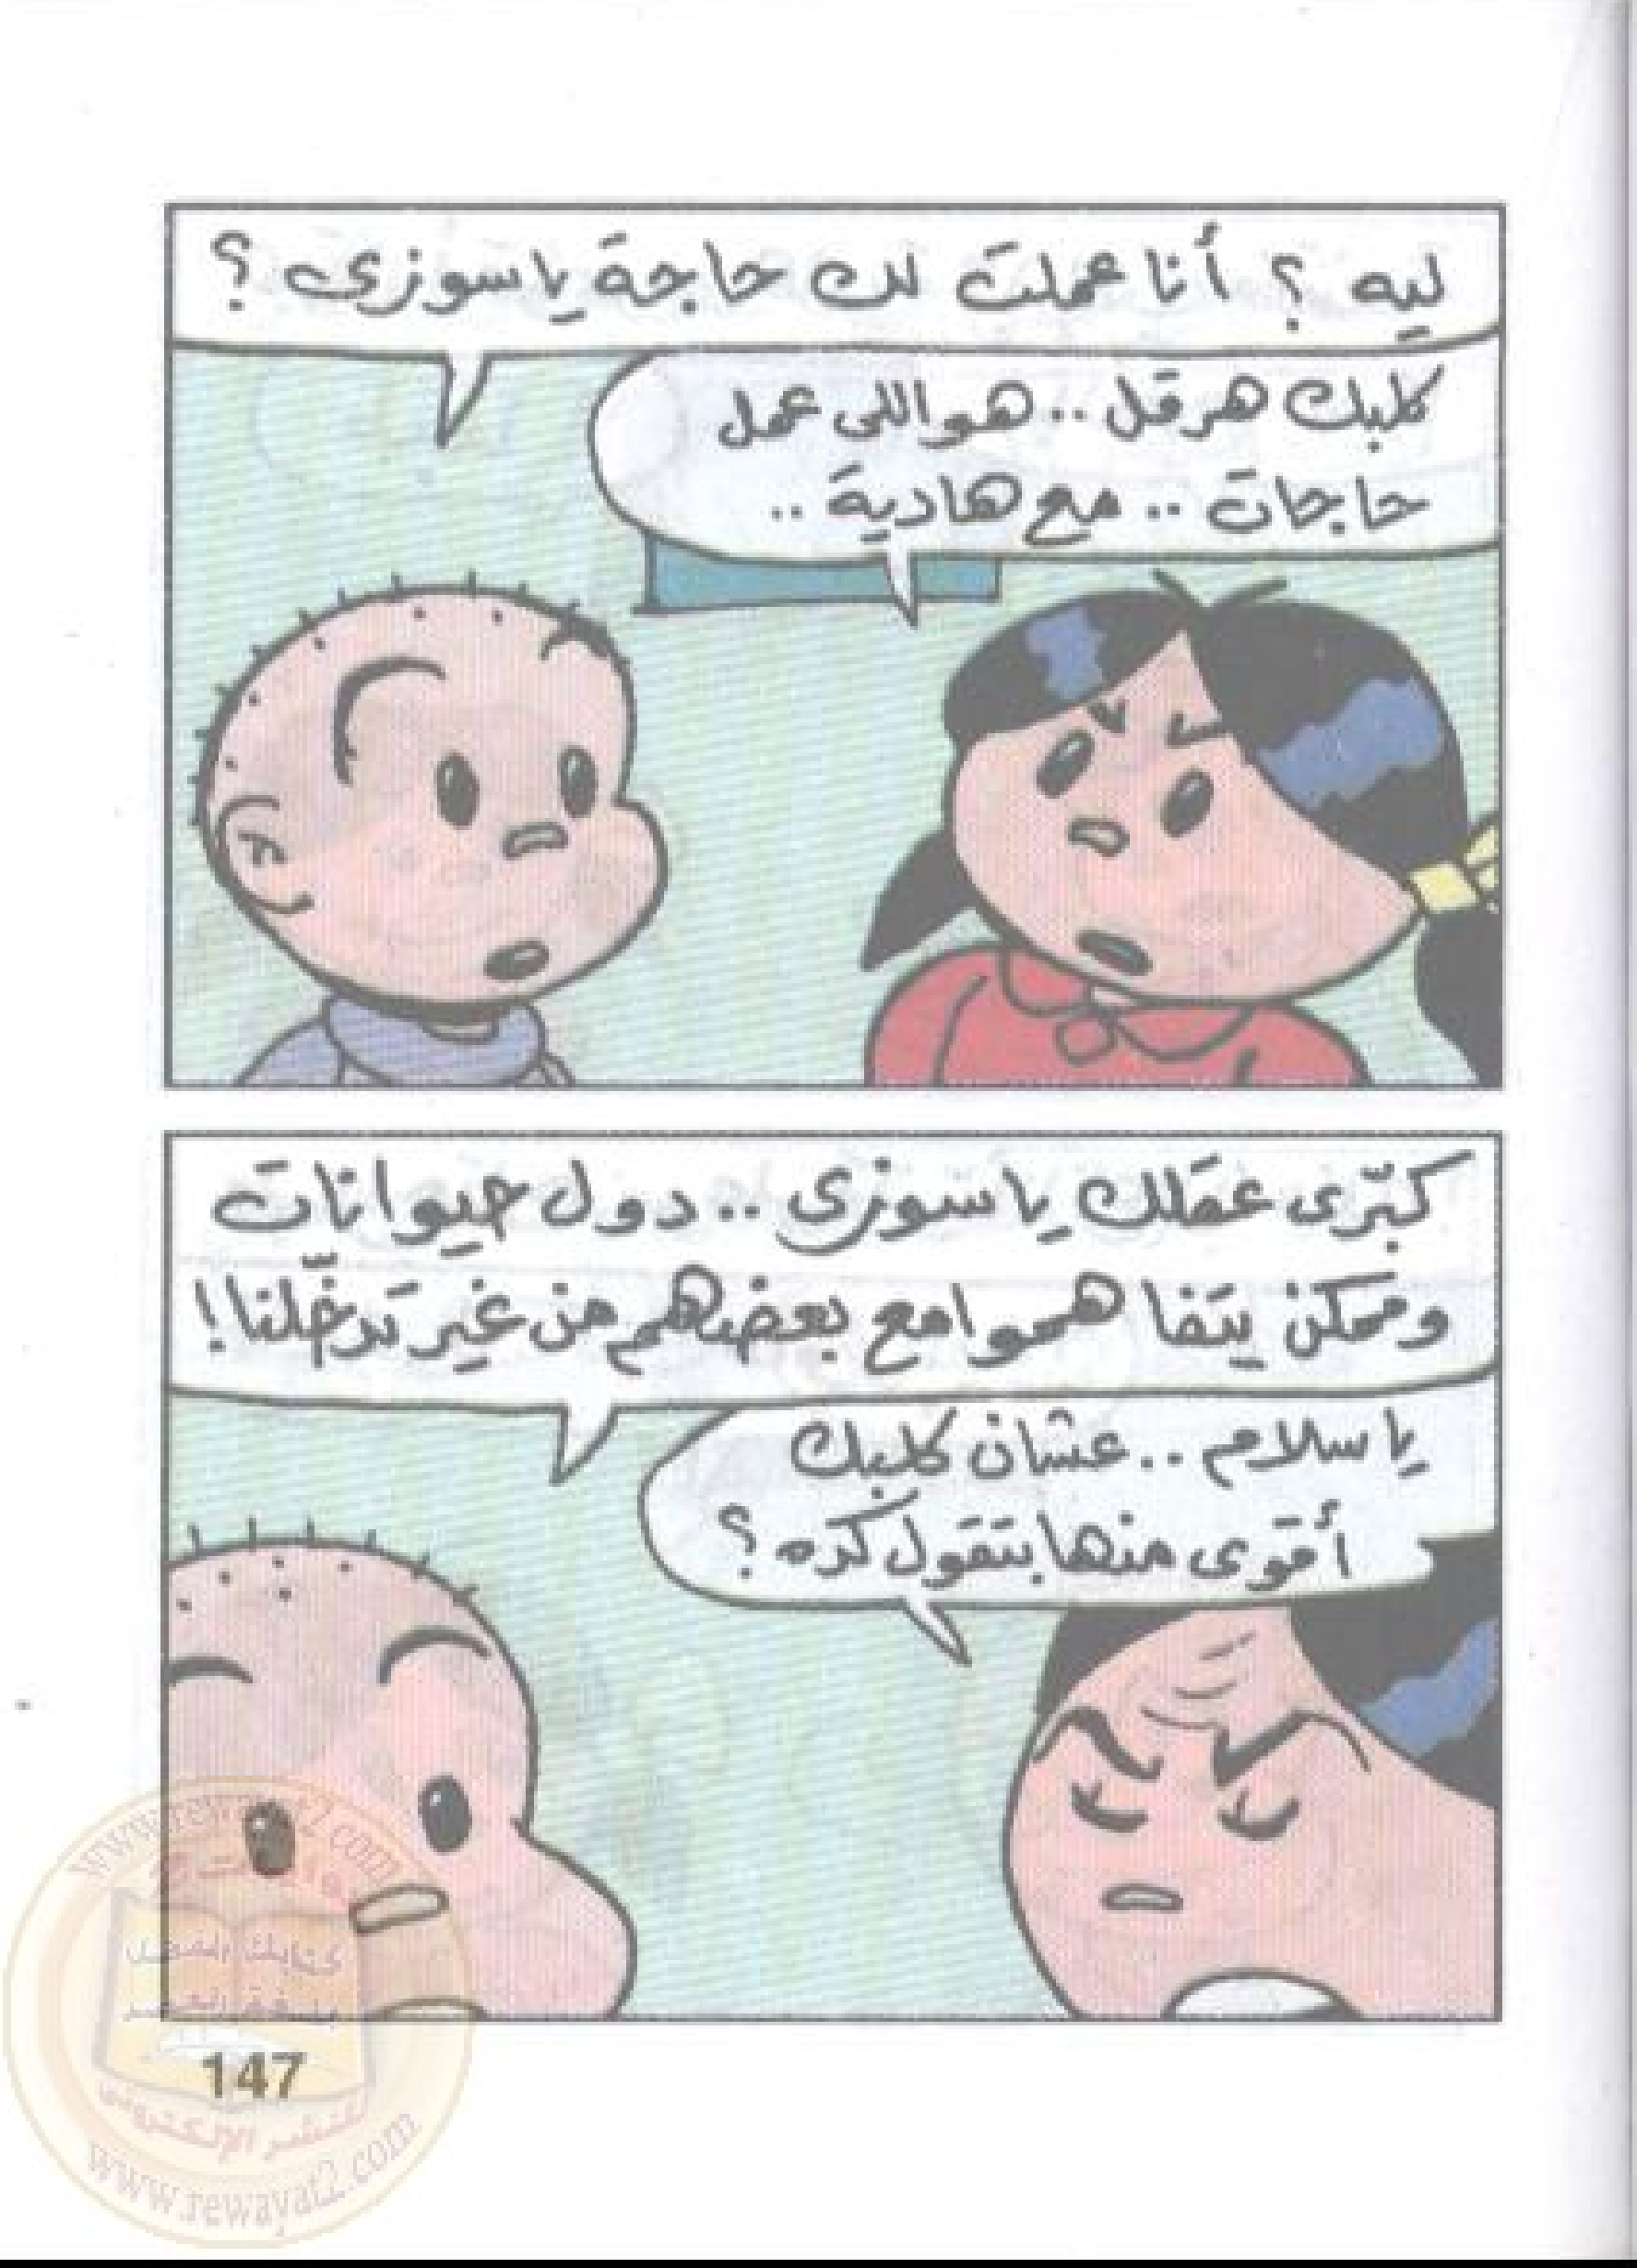 ليه ؟ أنا عملت لك حاجة يا سوزى ؟
كلبك هرقل .. هو اللى عمل
حاجات .. مع هادية ..
كبّرى عقلك يا سوزى .. دول حيوانات
وممكن يتفاهموا مع بعضهم من غير تدخّلنا !
يا سلام .. عشان كلبك
أقوى منها بتقول كده ؟
www.rewayat2.com
147
www.rewayat2.com